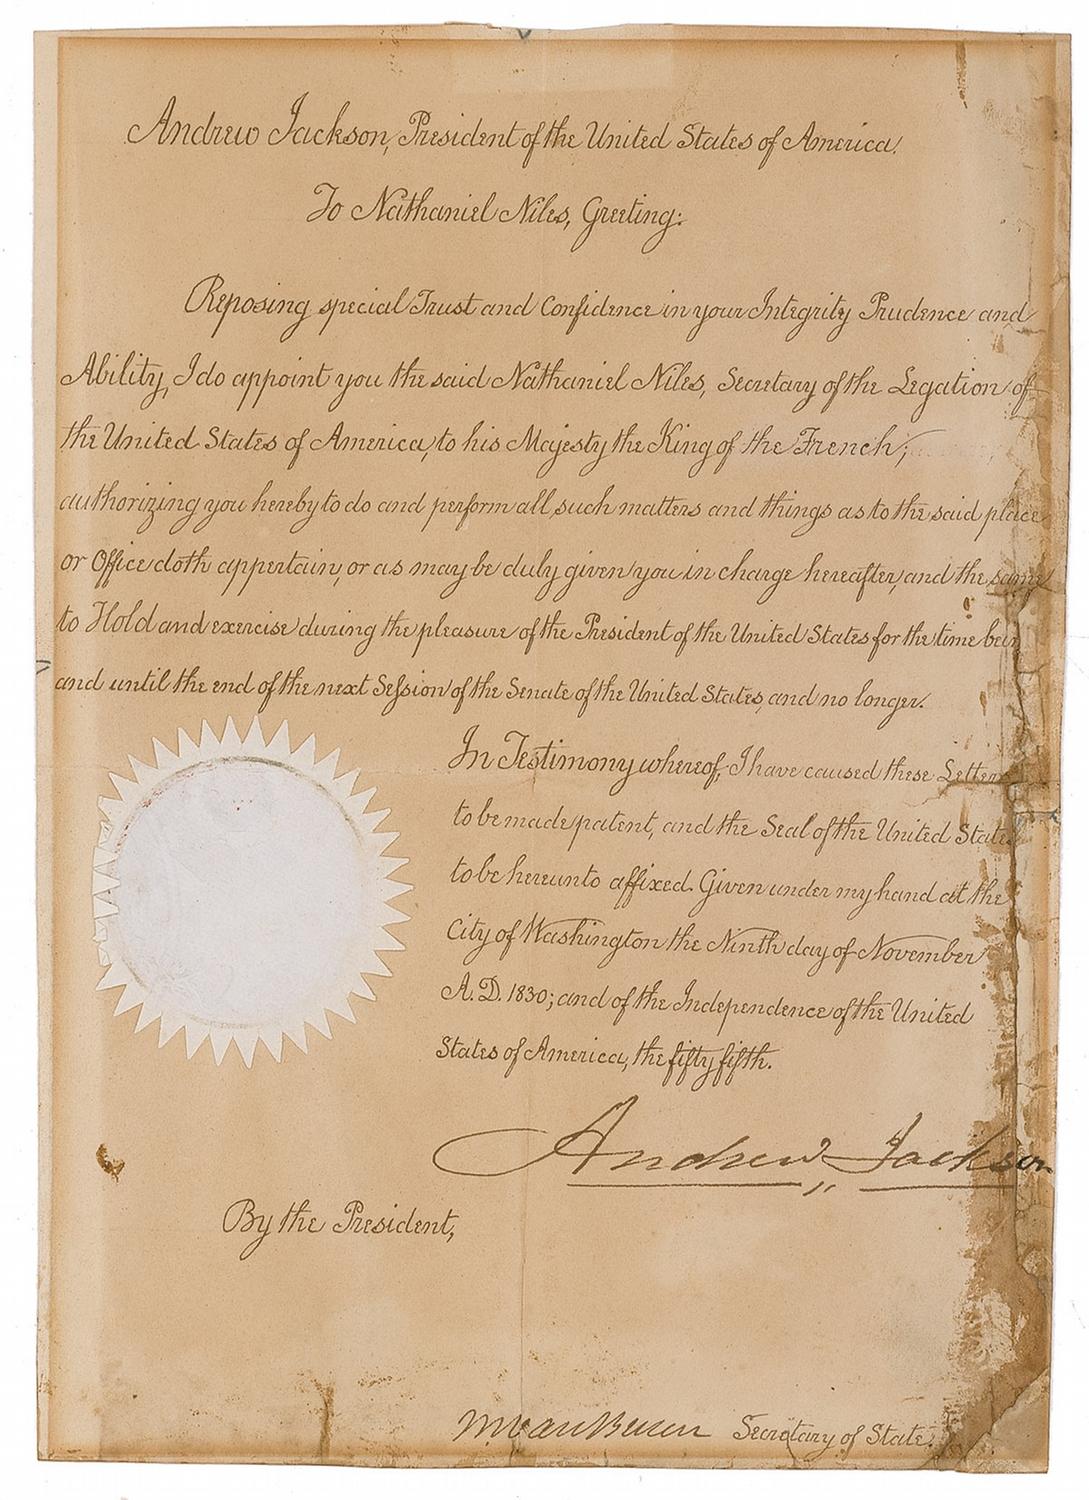 Andrew Jackson, President of the United States of America.
To Nathaniel Niles, Greeting:
Reposing special Trust and Confidence in your Integrity Prudence and
Ability, I do appoint you the said Nathaniel Niles, Secretary of the Legation of
the United States of America, to his Majesty the King of the French;
authorizing you hereby to do and perform all such matters and things as to the said place
or Office doth appertain, or as may be duly given you in charge hereafter, and the same
to Hold and exercise during the pleasure of the President of the United States for the time bein
and until the end of the next Session of the Senate of the United States, and no longer.
In Testimony whereof, I have caused these Letters
to be made patent, and the Seal of the United States
to be hereunto affixed. Given under my hand at the
City of Washington the Ninth day of November
A. D. 1830; and of the Independence of the United
States of America, the fifty fifth.
Andrew Jackson
By the President,
M Van Buren Secretary of State.